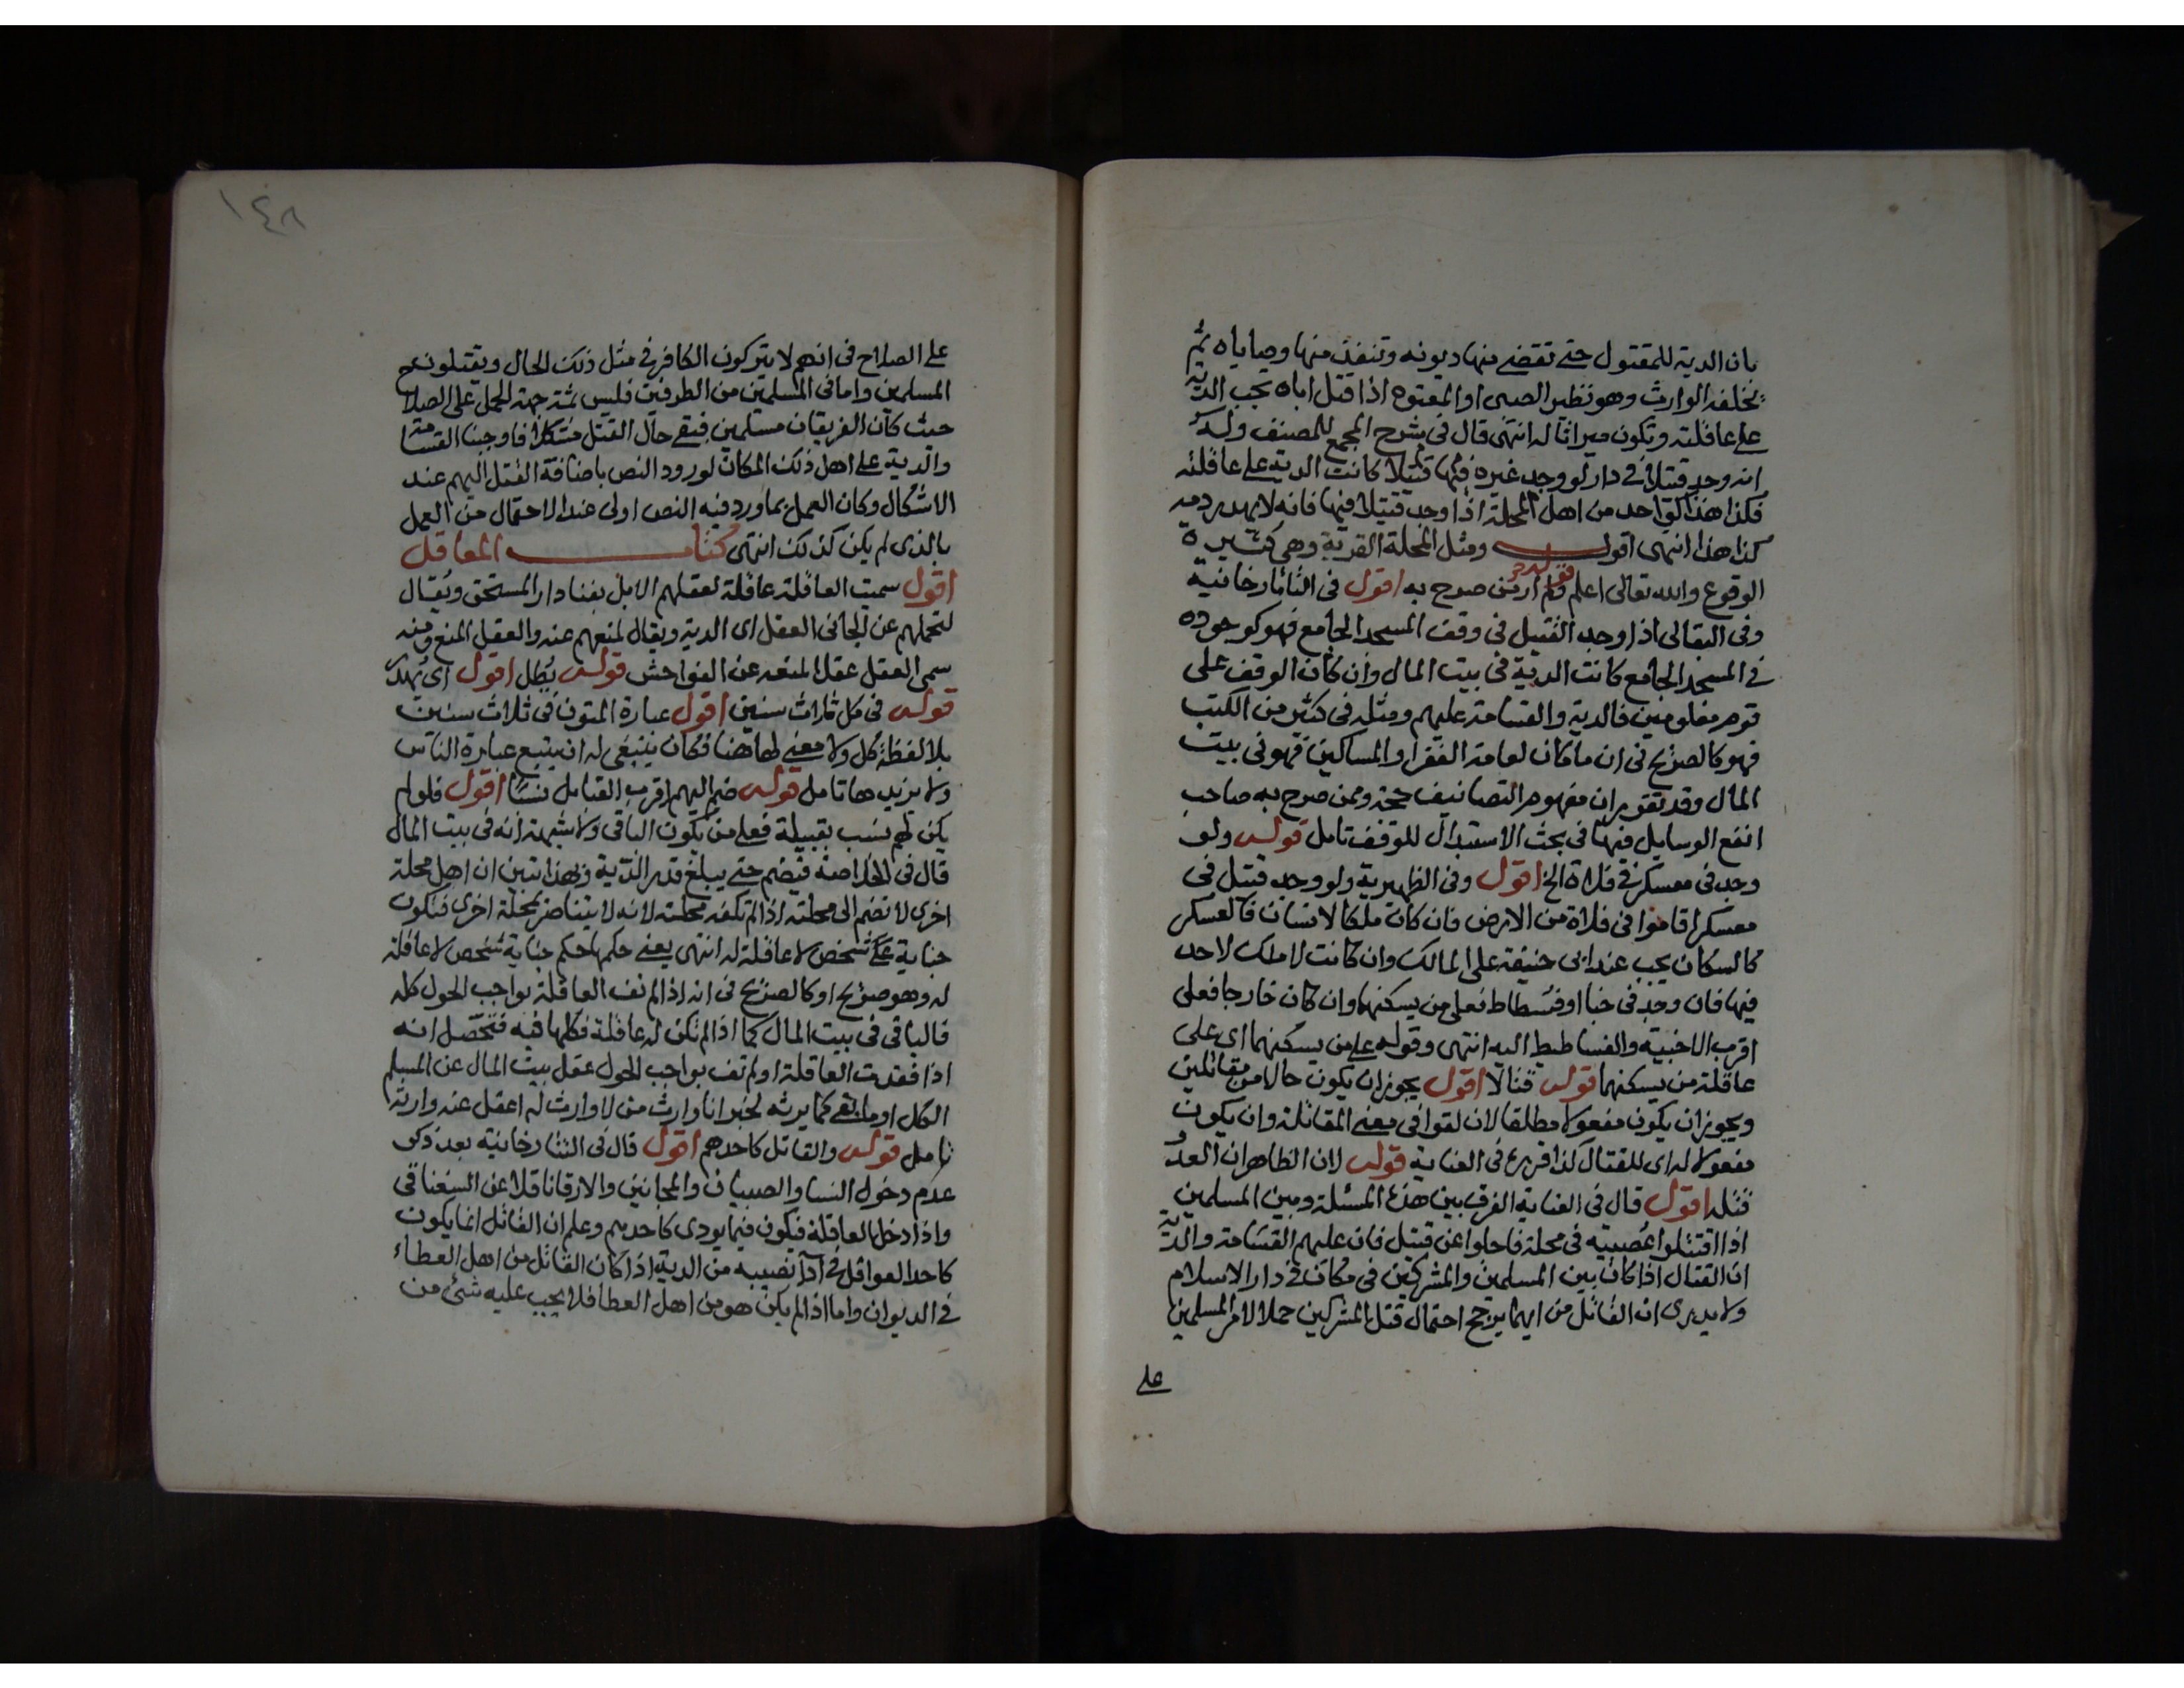 بان الدية للمقتول حتى تقضى منها ديونه وتنفذ منها وصاياه ثم
يخلفه الوارث وهو نظير الصبى او المعتوه اذا قتل اباه يجب الدية
على عاقلته وتكون ميراثا له انتهى قال فى شرح المجمع للمصنف
انه وجد قتيلا فى دار لو وجد غيره فيها قتيلا كانت الدية على عاقلته
فكذا هذا كواحد من اهل المحلة اذا وجد قتيلا فيها فانه لا يهدر دمه
كذا هذا انتهى اقول ومثل المحلة القرية وهى كثيرة
الوقوع والله تعالى اعلم قوله ولم ار من صرح به اقول فى التاتارخانية
وفى البقالى اذا وجد القتيل فى وقف المسجد الجامع فهو كوجوده
فى المسجد الجامع كانت الدية فى بيت المال وان كان الوقف على
قوم معلومين فالدية والقسامة عليهم ومثله فى كثير من الكتب
فهو كالصريح فى ان ما كان لعامة الفقرا والمساكين فهو فى بيت
المال وقد تقرر ان مفهوم التصانيف حجة وممن صرح به صاحب
انفع الوسايل فيها فى بحث الاستبدال للوقف تامل قوله ولو
وجد فى معسكر فى فلاة الخ اقول وفى الظهيرية ولو وجد قتيل فى
معسكر اقاموا فى فلاة من الارض فان كان ملكا لانسان فالعسكر
كالسكان يجب عند ابى حنيفة على المالك وان كانت لا ملك لاحد
فيها فان وجد فى خبا او فسطاط فعلى من يسكنها وان كان خارجا فعلى
اقرب الاخبية والفساطيط اليه انتهى وقوله على من يسكنهما اى على
عاقلة من يسكنهما قوله قتالا اقول يجوز ان يكون حالا من مقاتلين
ويجوز ان يكون مفعولا مطلقا لان لقوا فى معنى المقاتلة وان يكون
مفعولا له اى للقتال كذا قرره فى العناية قوله لان الظاهر ان العدو
قتله اقول قال فى العناية الفرق بين هذه المسئلة وبين المسلمين
اذا اقتتلوا عصبية فى محلة فاجلوا عن قتيل فان عليهم القسامة والدية
ان القتال اذا كان بين المسلمين والمشركين فى مكان فى دار الاسلام
ولا يدرى ان القاتل من ايهما يرجح احتمال قتل المشركين حملا لامر المسلمين
على
١٤٨
على الصلاح فى انهم لا يتركون الكافر فى مثل ذلك الحال ويقتلون
المسلمين واما فى المسلمين من الطرفين فليس ثمة جهة الحمل على الصلاح
حيث كان الفريقان مسلمين فبقى حال القتل مشكلا فاوجبنا القسامة
والدية على اهل ذلك المكان لورود النص باضافة القتل اليهم عند
الاشكال وكان العمل بما ورد فيه النص اولى عند الاحتمال من العمل
بالذى لم يكن كذلك انتهى كتاب المعاقل
اقول سميت العاقلة عاقلة لعقلهم الابل بفنا دار المستحق ويقال
لتحملهم عن الجانى العقل اى الدية ويقال لمنعهم عنه والعقل المنع ومنه
سمى العقل عقلا لمنعه عن الفواحش قوله يُطل اقول اى يُهدر
قوله فى كل ثلاث سنين اقول عبارة المتون فى ثلاث سنين
بلا لفظة كل ولا معنى لها هنا فكان ينبغى له ان يتبع عبارة الناس
ولا يزيدها تامل قوله ضم اليهم اقرب القبايل نسبا اقول فلو لم
يكن لهم نسب بقبيلة فعلى من يكون الباقى ولا شبهة انه فى بيت المال
قال فى الخلاصة فيضم حتى يبلغ قدر الدية وبهذا تبين ان اهل محلة
اخرى لا تضم الى محلته اذا لم تكف محلته لانه لا يتناصر بمحلة اخرى فتكون
جناية على شخص لا عاقلة له انتهى يعنى حكمها حكم جناية شخص لا عاقلة
له وهو صريح او كالصريح فى انه اذا لم تف العاقلة بواجب الحول كله
فالباقى فى بيت المال كما اذا لم تكن له عاقلة فكلها فيه فتحصل انه
اذا فقدت العاقلة او لم تف بواجب الحول عقل بيت المال عن المسلم
الكل او ما بقى كما يرثه لخبر انا وارث من لا وارث له اعقل عنه وارثه
تامل قوله والقاتل كاحدهم اقول قال فى التتارخانية بعد ذكر
عدم دخول النسا والصبيان والمجانين والارقا ناقلا عن السغناقى
واذا دخل العاقلة فيكون فيما يودى كاحدهم وعلم ان القاتل انما يكون
كاحد العواقل فى ادا نصيبه من الدية اذا كان القاتل من اهل العطاء
فى الديوان واما اذا لم يكن هو من اهل العطا فلا يجب عليه شئ من